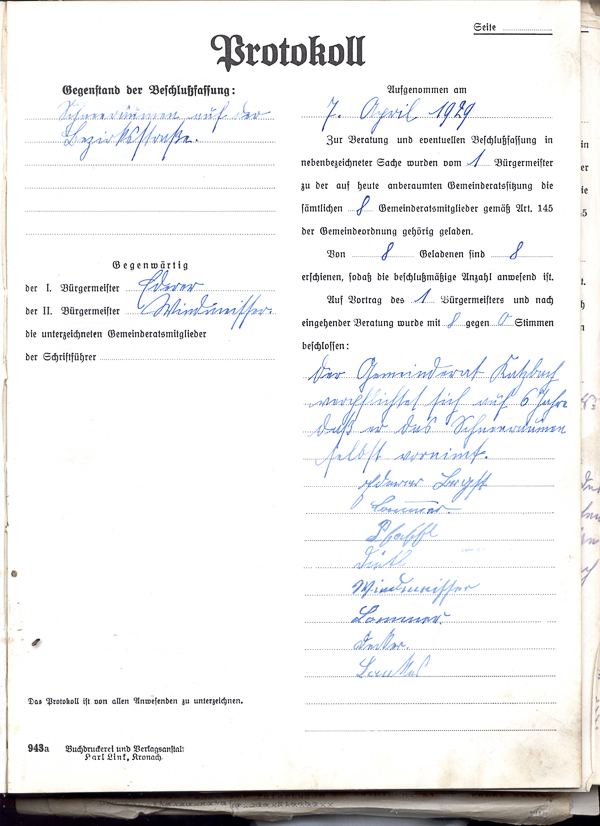 Seite
Protokoll
Gegenstand der Beschlußfassung:
Schneeräumen auf der
Bezirksstraße.
Gegenwärtig
der I. Bürgermeister Ederer
der II. Bürgermeister Windmeisser.
die unterzeichneten Gemeinderatsmitglieder
der Schriftführer
Das Protokoll ist von allen Anwesenden zu unterzeichnen.
943a Buchdruckerei und Verlagsanstalt
Karl Link, Kronach.
Aufgenommen am
7. April 1929
Zur Beratung und eventuellen Beschlußfassung in
nebenbezeichneter Sache wurden vom 1 Bürgermeister
zu der auf heute anberaumten Gemeinderatssitzung die
sämtlichen 8 Gemeinderatsmitglieder gemäß Art. 145
der Gemeindeordnung gehörig geladen.
Von 8 Geladenen sind 8
erschienen, sodaß die beschlußmäßige Anzahl anwesend ist.
Auf Vortrag des 1 Bürgermeisters und nach
eingehender Beratung wurde mit 8 gegen 0 Stimmen
beschlossen:
Der Gemeinderat Katzbach
verpflichtet sich auf 6 Jahre
daß er das Schneeräumen
selbst vornimt.
Ederer
Lommer.
Windmeisser
Lommer.
Decker.